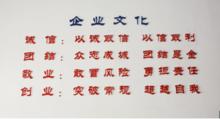 企业文化
诚信：以诚取信 以信取利
团结：众志成城 团结是金
敬业：敢冒风险 勇担责任
创业：突破常规 超越自我